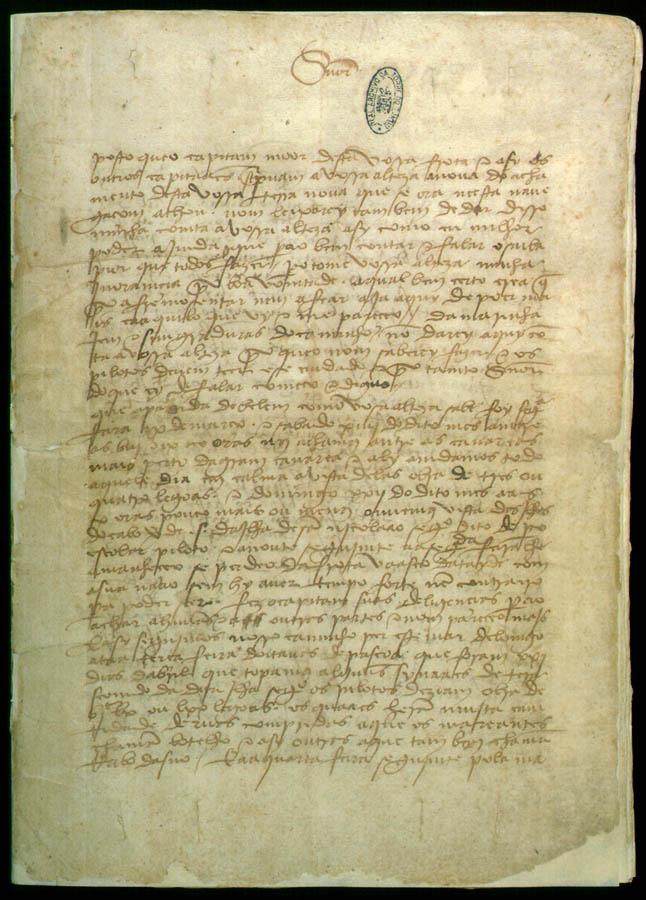 Snor
posto que o capitam moor desta vossa frota e asy os
outros capitaães screpuam a vossa alteza a noua do acha
mento desta vossa terra noua que se ora nesta naue
gaçom achou. nom leixarey tambem de dar disso
minha comta a vossa alteza asy como eu milhor
poder ajmda que pera o bem contar e falar o saiba
pior que todos fazer. pero tome vossa alteza minha
jnoramcia por boa vomtade. a qual bem certo crea que
por afremosentar nem afear aja aquy de poer ma
is ca aquilo que vy e me pareceo. da marinha
jem e simgraduras do caminho nõ darey aquy cõ
ta a vossa alteza porque o nom saberey fazer e os
pilotos deuem teer ese cuidado e por tanto Snor
do que ey de falar começo e diguo.
que a partida de belem como vosa alteza sabe foy segda
feira ix de março. e sabado xiiij do dito mes amtre
as biij e ix oras nos achamos amtre as canareas
mais perto da gram canarea e aly amdamos todo
aquele dia em calma a vista delas obra de tres ou
quatro legoas. e domingo xxij do dito mes aas
x oras pouco mais ou menos ouuemos vista das jlhas
do cabo verde. s. da jlha de sã njcolaao segº dito de pº
escolar piloto. e a noute segujmte aa segda feira lhe
amanheceo se perdeo da frota vaasco datayde com
a sua naao sem hy auer tempo forte nẽ contrairo
pera poder seer. fez o capitam suas deligençias pera o
achar a huũas e a outras partes e nom pareceo majs
E asy segujmos nosso caminho per este mar de lomgo
ataa terça feira doitauas de pascoa que foram xxj
dias dabril que topamos alguũs synaaes de tera
seemdo da dita jlha segº os pilotos deziam obra de
bjc lx ou lxx legoas. os quaaes herã mujta cam
tidade deruas compridas a que os mareantes
chamã botelho e asy outras a que tam bem chamã
rrabo dasno. E aa quarta feira segujmte pola ma